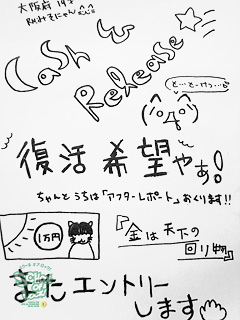 大阪府 19才
Cash is
Release
と…とーけつ…
復活希望やぁ!
ちゃんとうちは「アフターレポート」おくります!!
1万円
『金は天下の
回り物』
またエントリー
します